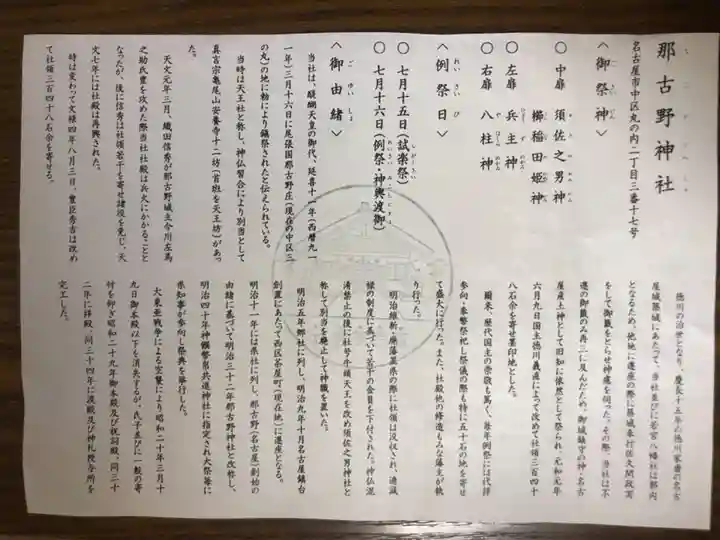 那古野神社
名古屋市中区丸の内二丁目三番十七号
〈御祭神〉
〇 中扉 須佐之男神
櫛稲田姫神
〇 左扉 兵主神
〇 右扉 八柱神
〈例祭日〉
〇 七月十五日(試楽祭)
〇 七月十六日(例祭・神輿渡御)
〈御由緒〉
当社は、醍醐天皇の御代、延喜十一年(西暦九一
一年)三月十六日に尾張国那古野庄(現在の中区三
の丸)の地に初めて鎮祭されたと伝えられている。
当時は天王社と称し、神仏習合により別当として
真言宗亀尾山安養寺十二坊(首班を天王坊)があっ
た。
天文元年三月、織田信秀が那古野城主今川左馬
之助氏豊を攻めた際当社社殿は兵火にかかることと
なったが、後に信秀は社領若干を寄せ諸役を免じ、天
文七年には社殿は再興された。
時は変わって文禄四年八月三日、豊臣秀吉は改め
て社領三百四十八石余を寄せる。
徳川の治世となり、慶長十五年の徳川家康の名古
屋城築城にあたって、当社並びに若宮八幡社は郭内
となるため、他地に遷座の際に築城奉行佐久間政実
をして御籤をとらせ神慮を伺った。その際、当社は不
遷の御籤のみ再三に及んだため、御城鎮守の神・名古
屋産土神として旧知に依然として祭られ、元和元年
六月九日国主徳川義直によって改めて社領三百四十
八石余を寄せ墨印地とした。
爾来、歴代国主の崇敬も篤く、毎年例祭には代拝
参向・奉幣祭祀し祭儀の際も特に五十石の地を寄せ
て盛大に行った。また、社殿他の修造もみな藩主が執
り行った。
明治維新・廃藩置県の際に社領は没収され、逓減
様の制度に基づいて若干の金員を下付された。神仏混
淆禁止の後に社号牛頭天王を改め須佐之男神社と
称して別当を廃止して神職を置いた。
明治五年郷社に列し、明治九年十月名古屋鎮台
創置にあたって西区茶屋町(現在地)に遷座となる。
明治十一年には県社に列し、那古野(名古屋)創始の
由緒に基づいて明治三十二年那古野神社と改称し、
明治四十年神饌幣帛供進神社に指定され大祭毎に
県知事が参向し祭典を挙行した。
大東亜戦争による空襲により昭和二十年三月十
九日御本殿以下を消失するが、氏子並びに一般の寄
付を仰ぎ昭和二十九年御本殿及び祝詞殿、同三十
二年に拝殿、同三十四年に渡殿及び神札授与所を
完工した。